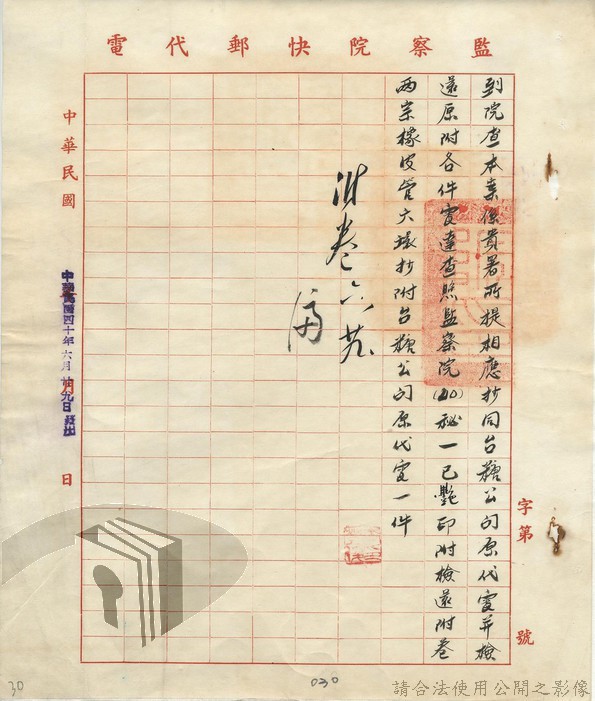 監察院快郵代電
字第 號
到院查本案係貴署所提相應抄同台糖公司原代電并檢
還原附各件電達查照監察院(40)秘一已艷印附檢還附卷
兩宗橡皮管六球抄附台糖公司原代電一件
附卷六
中華民國
中華民國四十年六月廿九日發出
日
30
030
請合法使用公開之影像